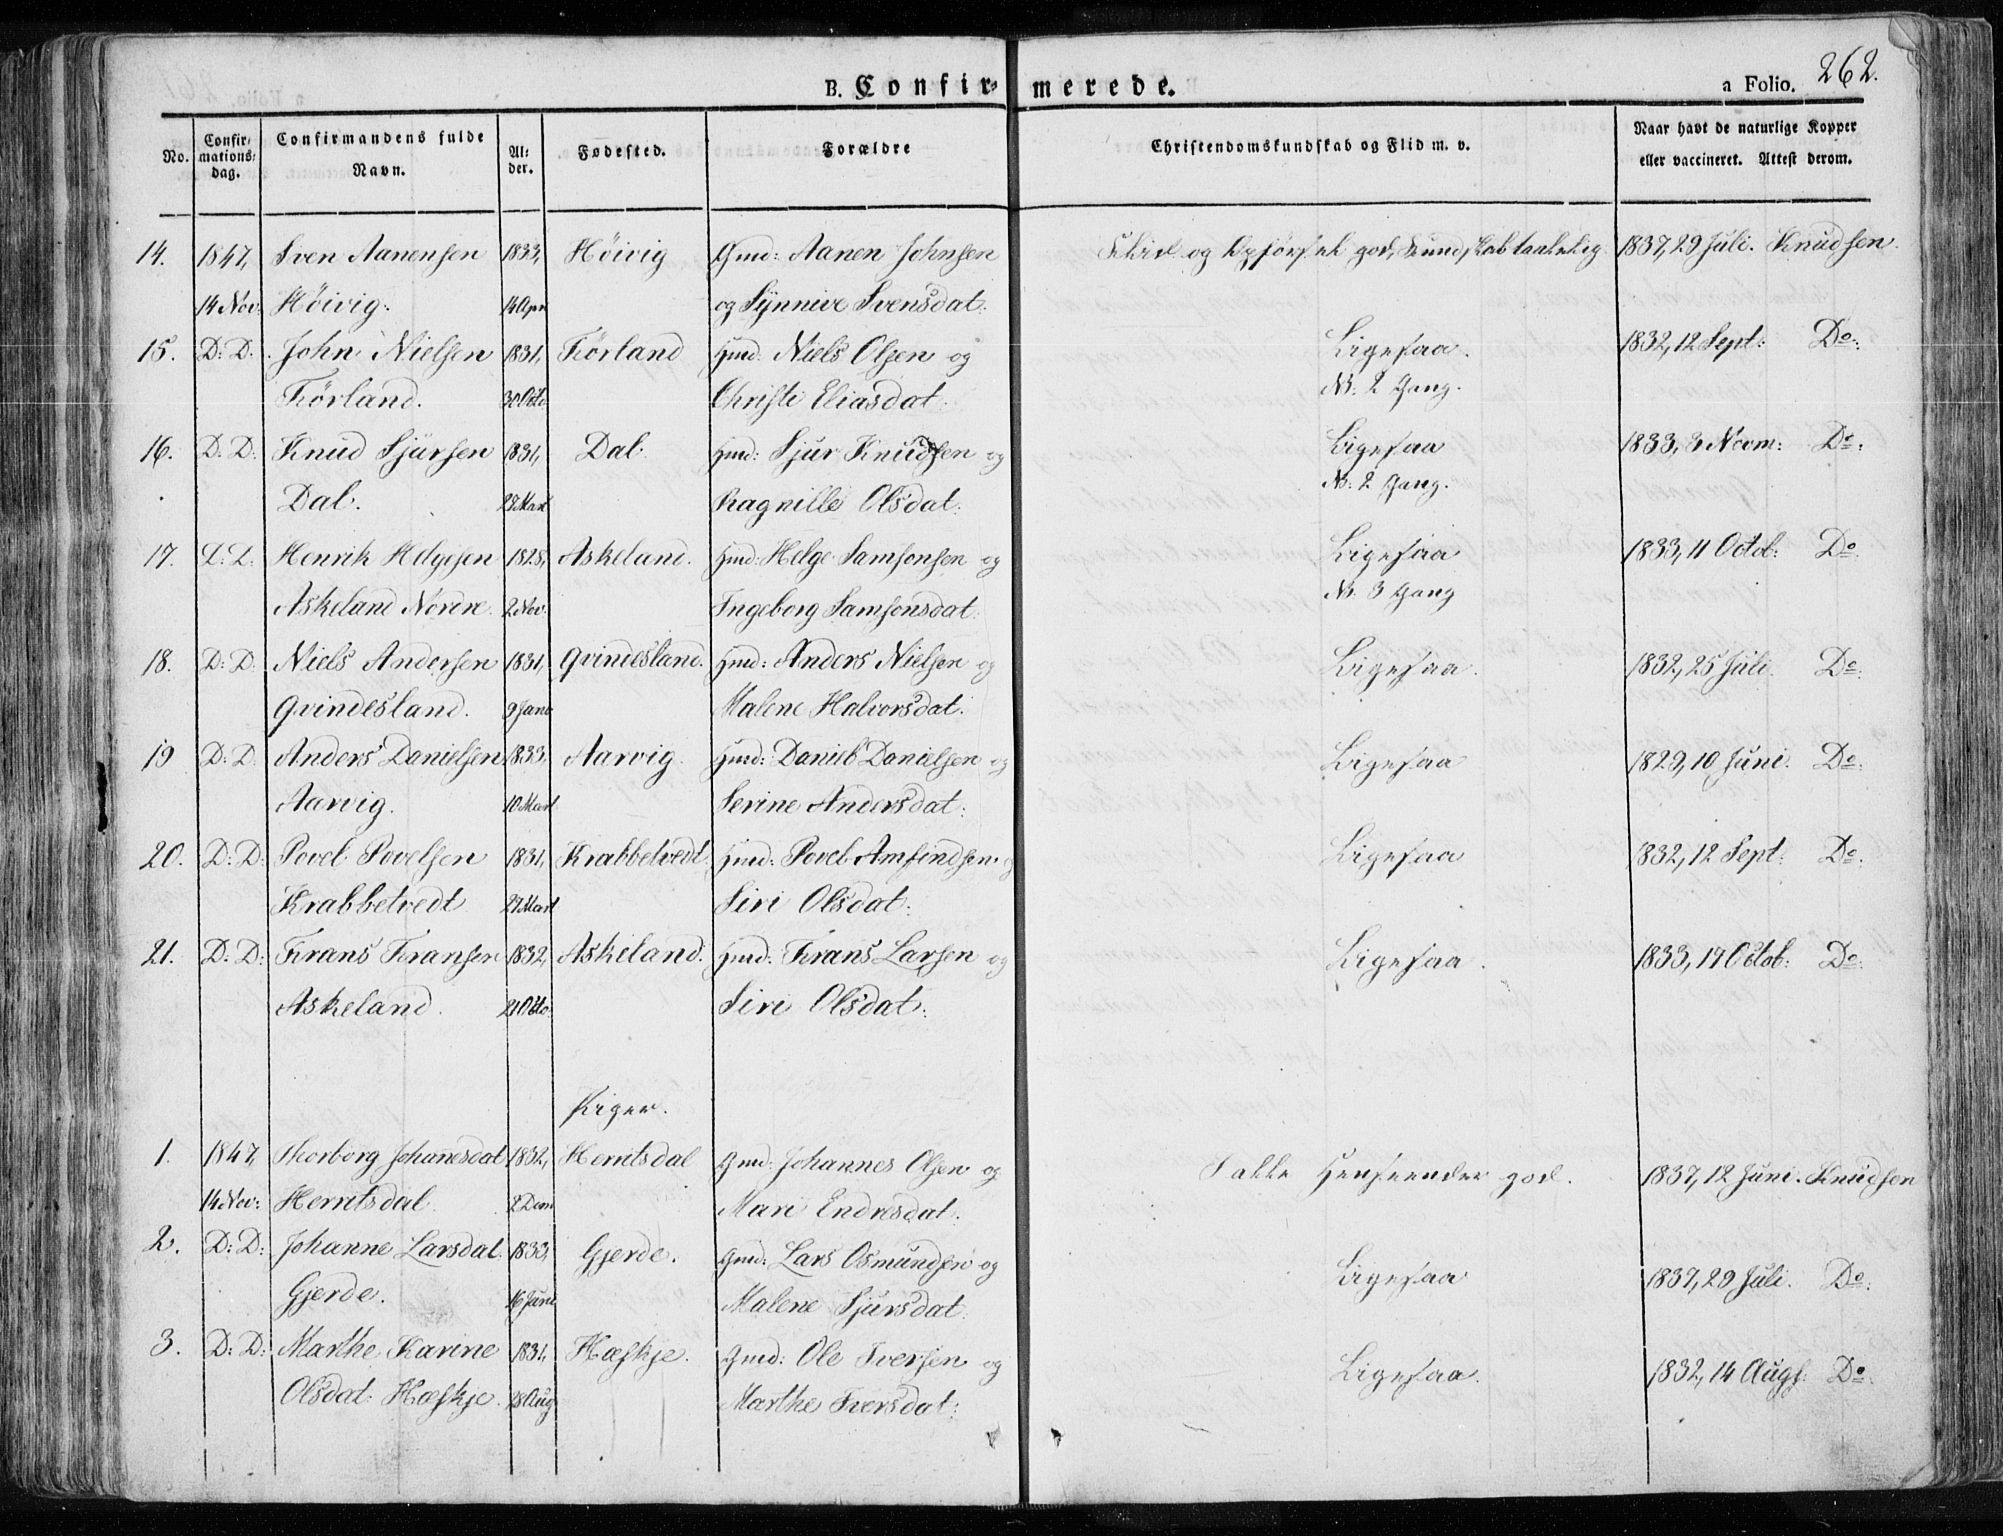 B. Confirmerede. a Folio. 262.
No. Confirmations dag. Confirmandens fulde Navn. Alder. Fødested. Forældre Christendomskundskab og Flid m. v. Naar havt de naturlige Kopper eller vaccineret. Attest derom.
14. 1847, Sven Aanensen 1833, Höivig Gmd: Aanen Johnsen Flid og Opförsel god, Kundskab taalelig. 1837, 29 Juli. Knudsen.
14 Nov: Höivig. 14 Apr og Synnive Svensdat:
15. D: D: John Nielsen 1831, Förland Hmd: Niels Olsen og Ligesaa. 1832, 12 Sept: Do:
Förland. 30 Octo Christi Eliasdat: No: 2 Gang.
16. D: D: Knud Sjursen 1831, Dal. Hmd: Sjur Knudsen og Ligesaa 1833, 3 Novm: Do:
Dal. 29 Mart Ragnille Olsdat: No: 2 Gang.
17. D: D: Henrik Helgesen 1828, Askeland. Hmd: Helge Samsonsen og Ligesaa 1833, 11 Octob: Do
Askeland Nordre. 2 Nov. Ingeborg Samsonsdat: No. 3 Gang
18. D: D. Niels Andersen 1831, Qvindesland. Hmd: Anders Nielsen og Ligesaa. 1832, 25 Juli. Do
Qvindesland. 9 Janu Malene Halvorsdat:
19 D: D. Anders Danielsen 1833. Aarvig. Hmd: Daniel Danielsen og Ligesaa 1829, 10 Juni. Do:
Aarvig. 10 Mart Serine Andersdat:
20. D: D: Povel Povelsen 1831, Krabbetvedt Hmd: Povel Amfindsen og Ligesaa 1832, 12 Sept: Do:
Krabbetvedt 27 Mart Siri Olsdat:
21. D: D: Frans Fransen 1832, Askeland. Hmd: Frans Larsen og Ligesaa. 1833, 17 Octob: Do:
Askeland. 21 Octo: Siri Olsdat:
Piger.
1. 1847, Thorborg Johanesdat 1832, Herritsdal Gmd: Johannes Olsen og I alle Henseender god. 1837, 12 Juni. Knudsen
14 Nov: Herritsdal. 2 Dem Mari Endresdat.
2. D: D: Johanne Larsdat. 1833, Gjerde. Gmd: Lars Osmundsen og Ligesaa 1837, 29 Juli. Do:
Gjerde. 16 Juni Malene Sjursdat.
3. D: D: Marthe Karine 1831, Hæskje. Gmd: Ole Iversen og Ligesaa. 1832, 14 Augs: Do:
Olsdat: Hæskje. 28 Aug Marthe Iversdat: